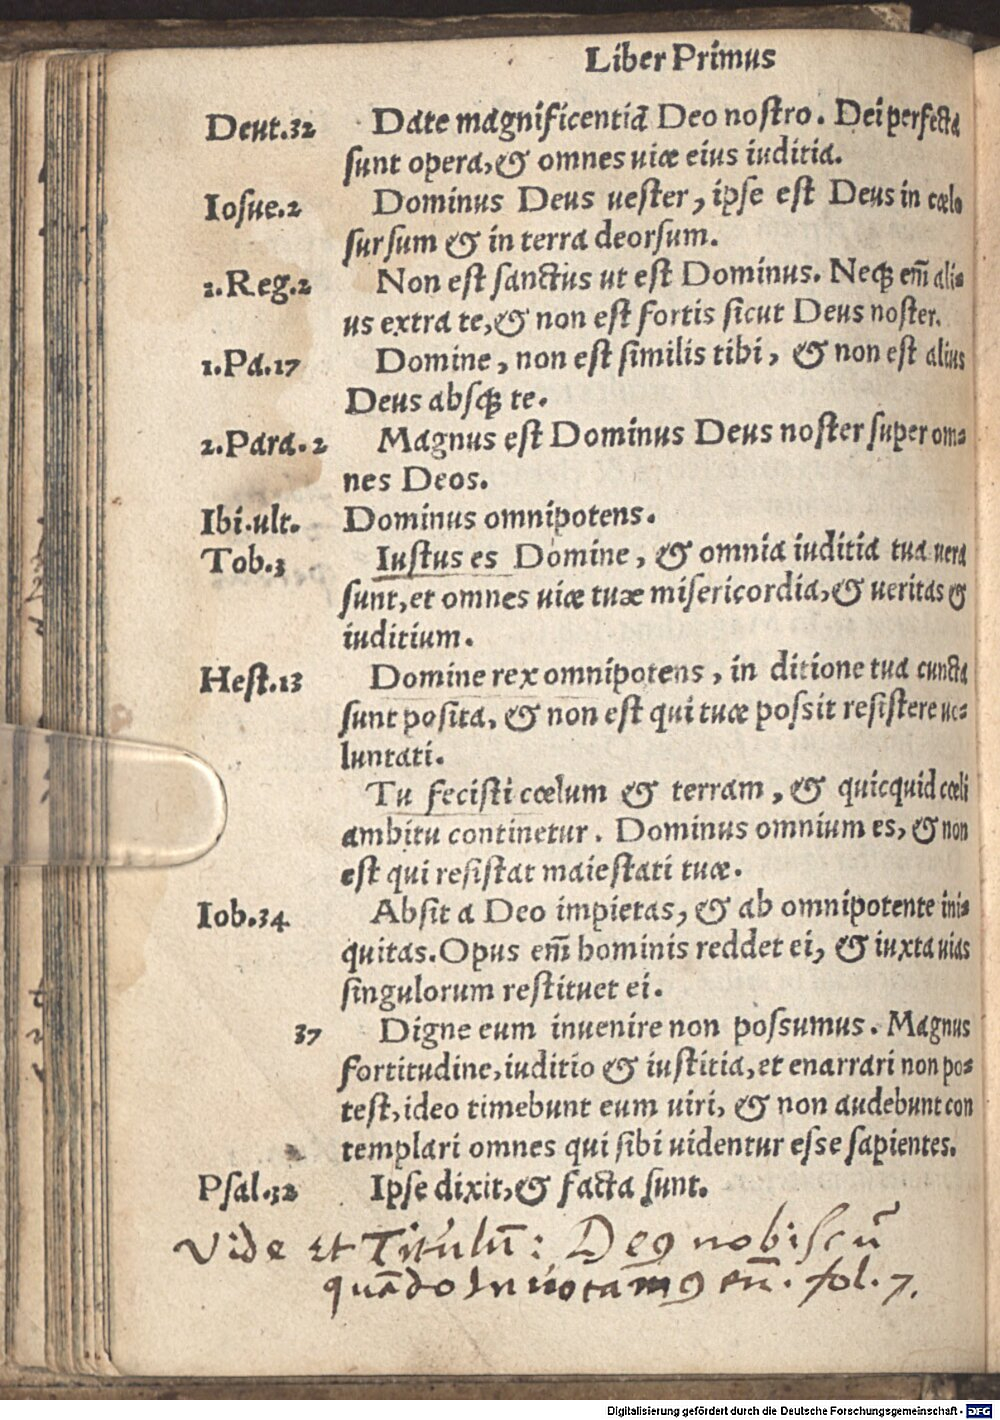 Liber Primus
Deut.32 Date magnificentiā Deo nostro. Dei perfecta
sunt opera, & omnes uiæ eius iuditia.
Iosue.2 Dominus Deus uester, ipse est Deus in cœlo
sursum & in terra deorsum.
1.Reg.2 Non est sanctus ut est Dominus. Neqꝫ em̄ ali-
us extra te, & non est fortis sicut Deus noster.
1.Pa.17 Domine, non est similis tibi, & non est alius
Deus absqꝫ te.
2.Para.2 Magnus est Dominus Deus noster super om-
nes Deos.
Ibi.ult. Dominus omnipotens.
Tob.3 Iustus es Domine, & omnia iuditia tua uera
sunt, et omnes uiæ tuæ misericordia, & ueritas &
iuditium.
Hest.13 Domine rex omnipotens, in ditione tua cuncta
sunt posita, & non est qui tuæ possit resistere uo-
luntati.
Tu fecisti cœlum & terram, & quicquid cœli
ambitu continetur. Dominus omnium es, & non
est qui resistat maiestati tuæ.
Iob.34 Absit a Deo impietas, & ab omnipotente ini-
quitas. Opus em̄ hominis reddet ei, & iuxta uias
singulorum restituet ei.
37 Digne eum inuenire non possumus. Magnus
fortitudine, iuditio & iustitia, et enarrari non po-
test, ideo timebunt eum uiri, & non audebunt con
templari omnes qui sibi uidentur esse sapientes.
Psal.32 Ipse dixit, & facta sunt.
Vide et Titulū: Deꝰ nobiscū
quādo Inuocamꝰ eū. fol. 7.
Digitalisierung gefördert durch die Deutsche Forschungsgemeinschaft - DFG